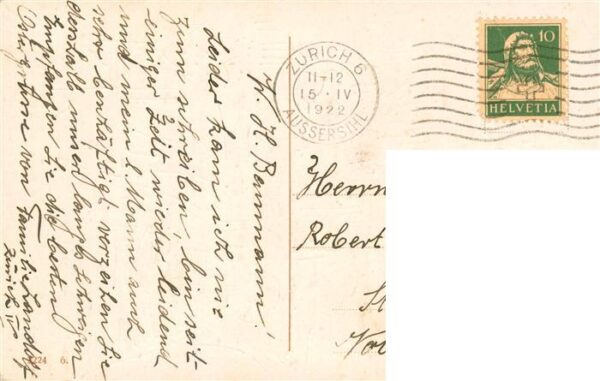 W. H. Baumann!
Leider kam ich nie
zum schreiben, bin seit
einiger Zeit wieder leidend
und mein l. Mann auch
sehr beschäftigt verzeihen Sie
deshalb unser langes Schweigen
Empfangen Sie die besten
Ostergrüsse von Familie Landolt
Zürich IV
224 6.
ZÜRICH 6
11-12
15. IV
1922
AUSSERSIHL
10
HELVETIA
Herrn
Robert